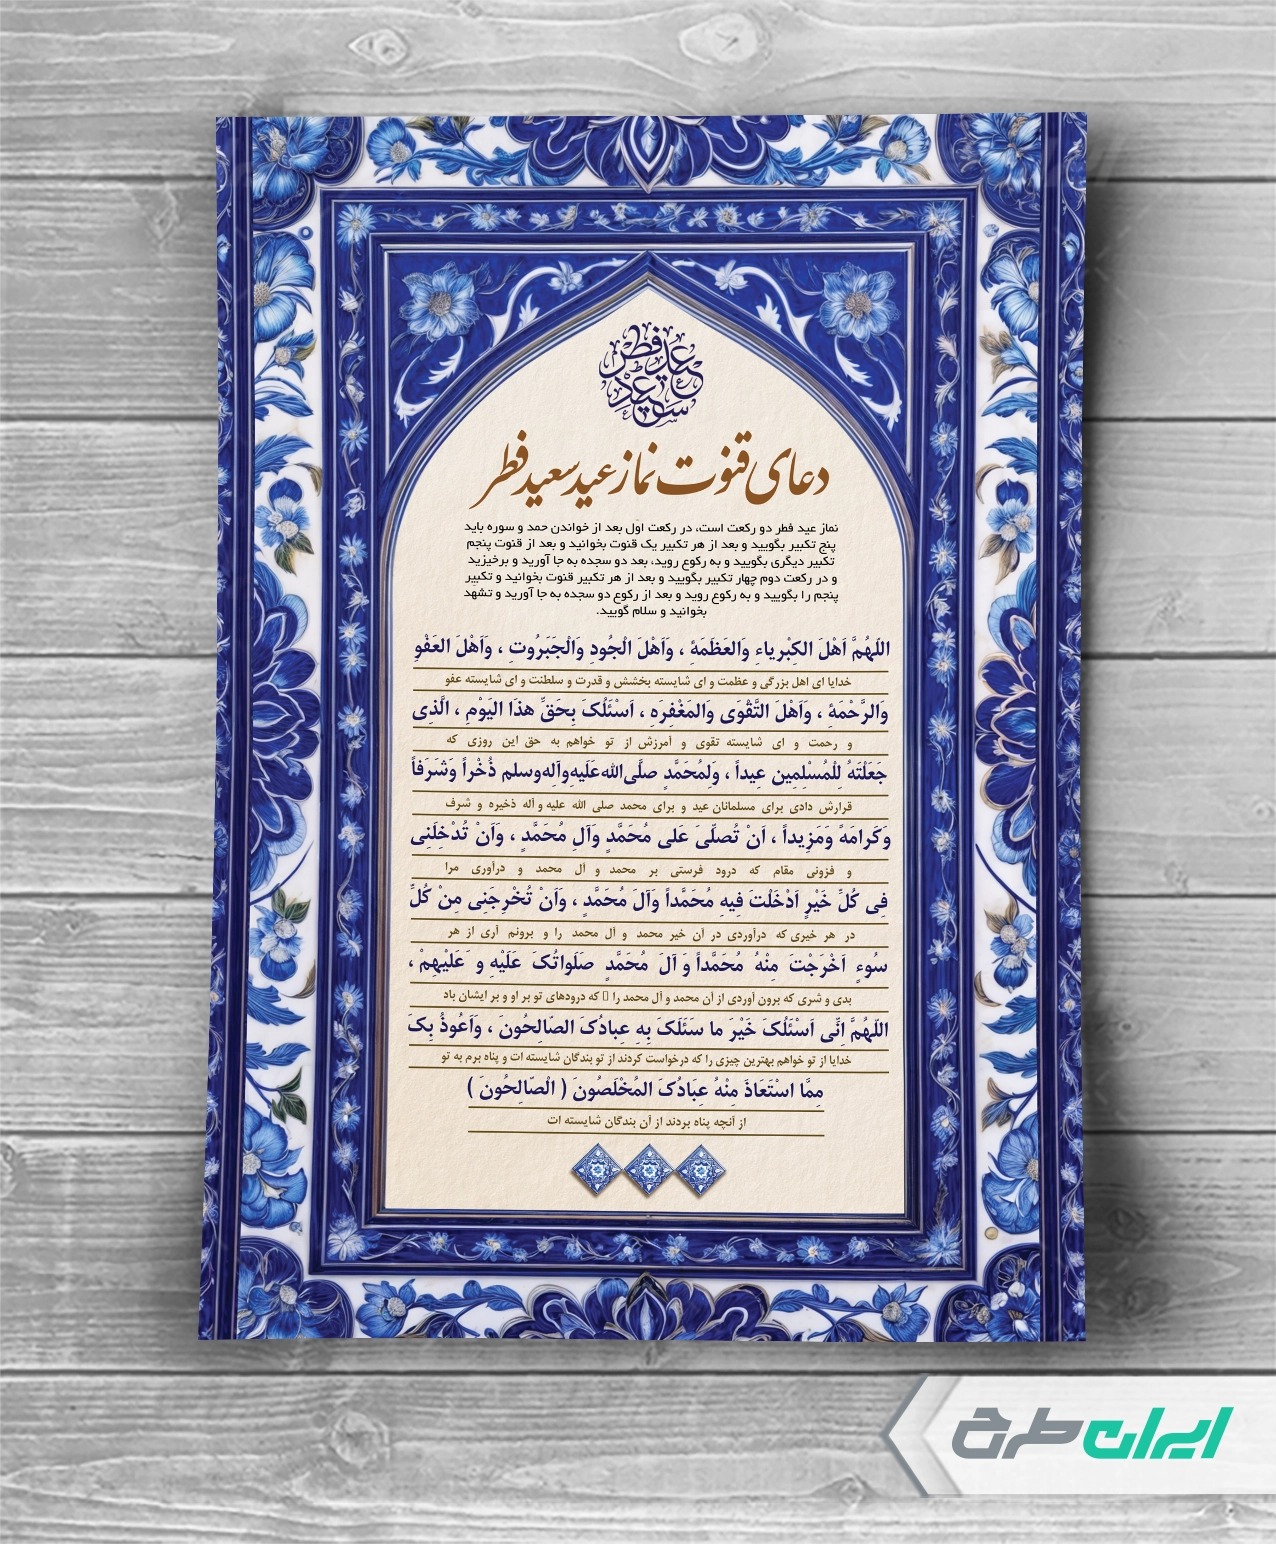 عید سعید فطر
دعای قنوت نماز عید سعید فطر
نماز عید فطر دو رکعت است، در رکعت اول بعد از خواندن حمد و سوره باید
پنج تکبیر بگویید و بعد از هر تکبیر یک قنوت بخوانید و بعد از قنوت پنجم
تکبیر دیگری بگویید و به رکوع روید، بعد دو سجده به جا آورید و برخیزید
و در رکعت دوم چهار تکبیر بگویید و بعد از هر تکبیر قنوت بخوانید و تکبیر
پنجم را بگویید و به رکوع روید و بعد از رکوع دو سجده به جا آورید و تشهد
بخوانید و سلام گویید.
اللّهُمَّ اَهْلَ الکِبْریاءِ وَالعَظَمَهِٔ ، وَاَهْلَ الْجُودِ وَالْجَبَرُوتِ ، وَاَهْلَ العَفْوِ
خدایا ای اهل بزرگی و عظمت و ای شایسته بخشش و قدرت و سلطنت و ای شایسته عفو
وَالرَّحْمَهِٔ ، وَاَهْلَ التَّقْوَی وَالمَغْفِرَهِ ، اَسْئَلُکَ بِحَقِّ هذَا الیَوْمِ ، الَّذِی
و رحمت و ای شایسته تقوی و آمرزش از تو خواهم به حق این روزی که
جَعَلْتَهُ لِلْمُسْلِمِین عِیداً ، وَلِمُحَمَّدٍ صلَّی‌الله‌عَلَیهِ‌وآلِه‌وسلم ذُخْراً وَشَرَفاً
قرارش دادی برای مسلمانان عید و برای محمد صلی الله علیه و آله ذخیره و شرف
وَکَرامَهًٔ وَمَزِیداً ، اَنْ تُصلَّیَ عَلی مُحَمَّدٍ وَآلِ مُحَمَّدٍ ، وَاَنْ تُدْخِلَنِی
و فزونی مقام که درود فرستی بر محمد و آل محمد و درآوری مرا
فِی کُلِّ خَیْرٍ اَدْخَلْتَ فِیهِ مُحَمَّداً وَآلَ مُحَمَّدٍ ، وَاَنْ تُخْرِجَنِی مِنْ کُلِّ
در هر خیری که درآوردی در آن خیر محمد و آل محمد را و برونم آری از هر
سُوءٍ اَخْرَجْتَ مِنْهُ مُحَمَّداً وَ آلَ مُحَمَّدٍ صَلَواتُکَ عَلَیْهِ و عَلَیْهِمْ ،
بدی و شری که برون آوردی از آن محمد و آل محمد را که درودهای تو بر او و بر ایشان باد
اللّهُمَّ اِنِّی اَسْئَلُکَ خَیْرَ ما سَئَلَکَ بِهِ عِبادُکَ الصّالِحُونَ ، وَاَعُوذُ بِکَ
خدایا از تو خواهم بهترین چیزی را که درخواست کردند از تو بندگان شایسته ات و پناه برم به تو
مِمَّا اسْتَعَاذَ مِنْهُ عِبَادُکَ المُخْلَصُونَ ( الْصّالِحُونَ )
از آنچه پناه بردند از آن بندگان شایسته ات
ایران طرح